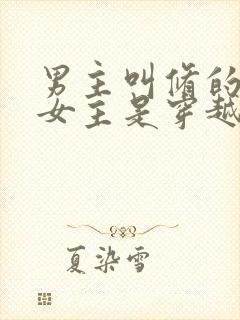 男主叫脩的
女主是穿越
夏染雪